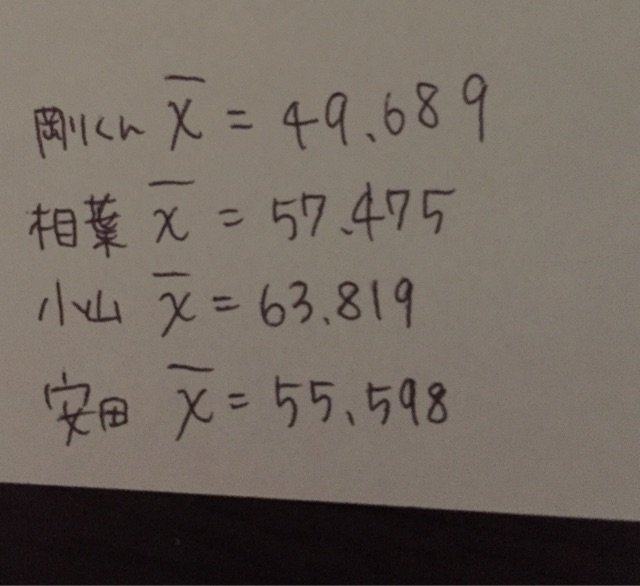 剛くん x̄ = 49.689
相葉 x̄ = 57.475
小山 x̄ = 63.819
安田 x̄ = 55.598